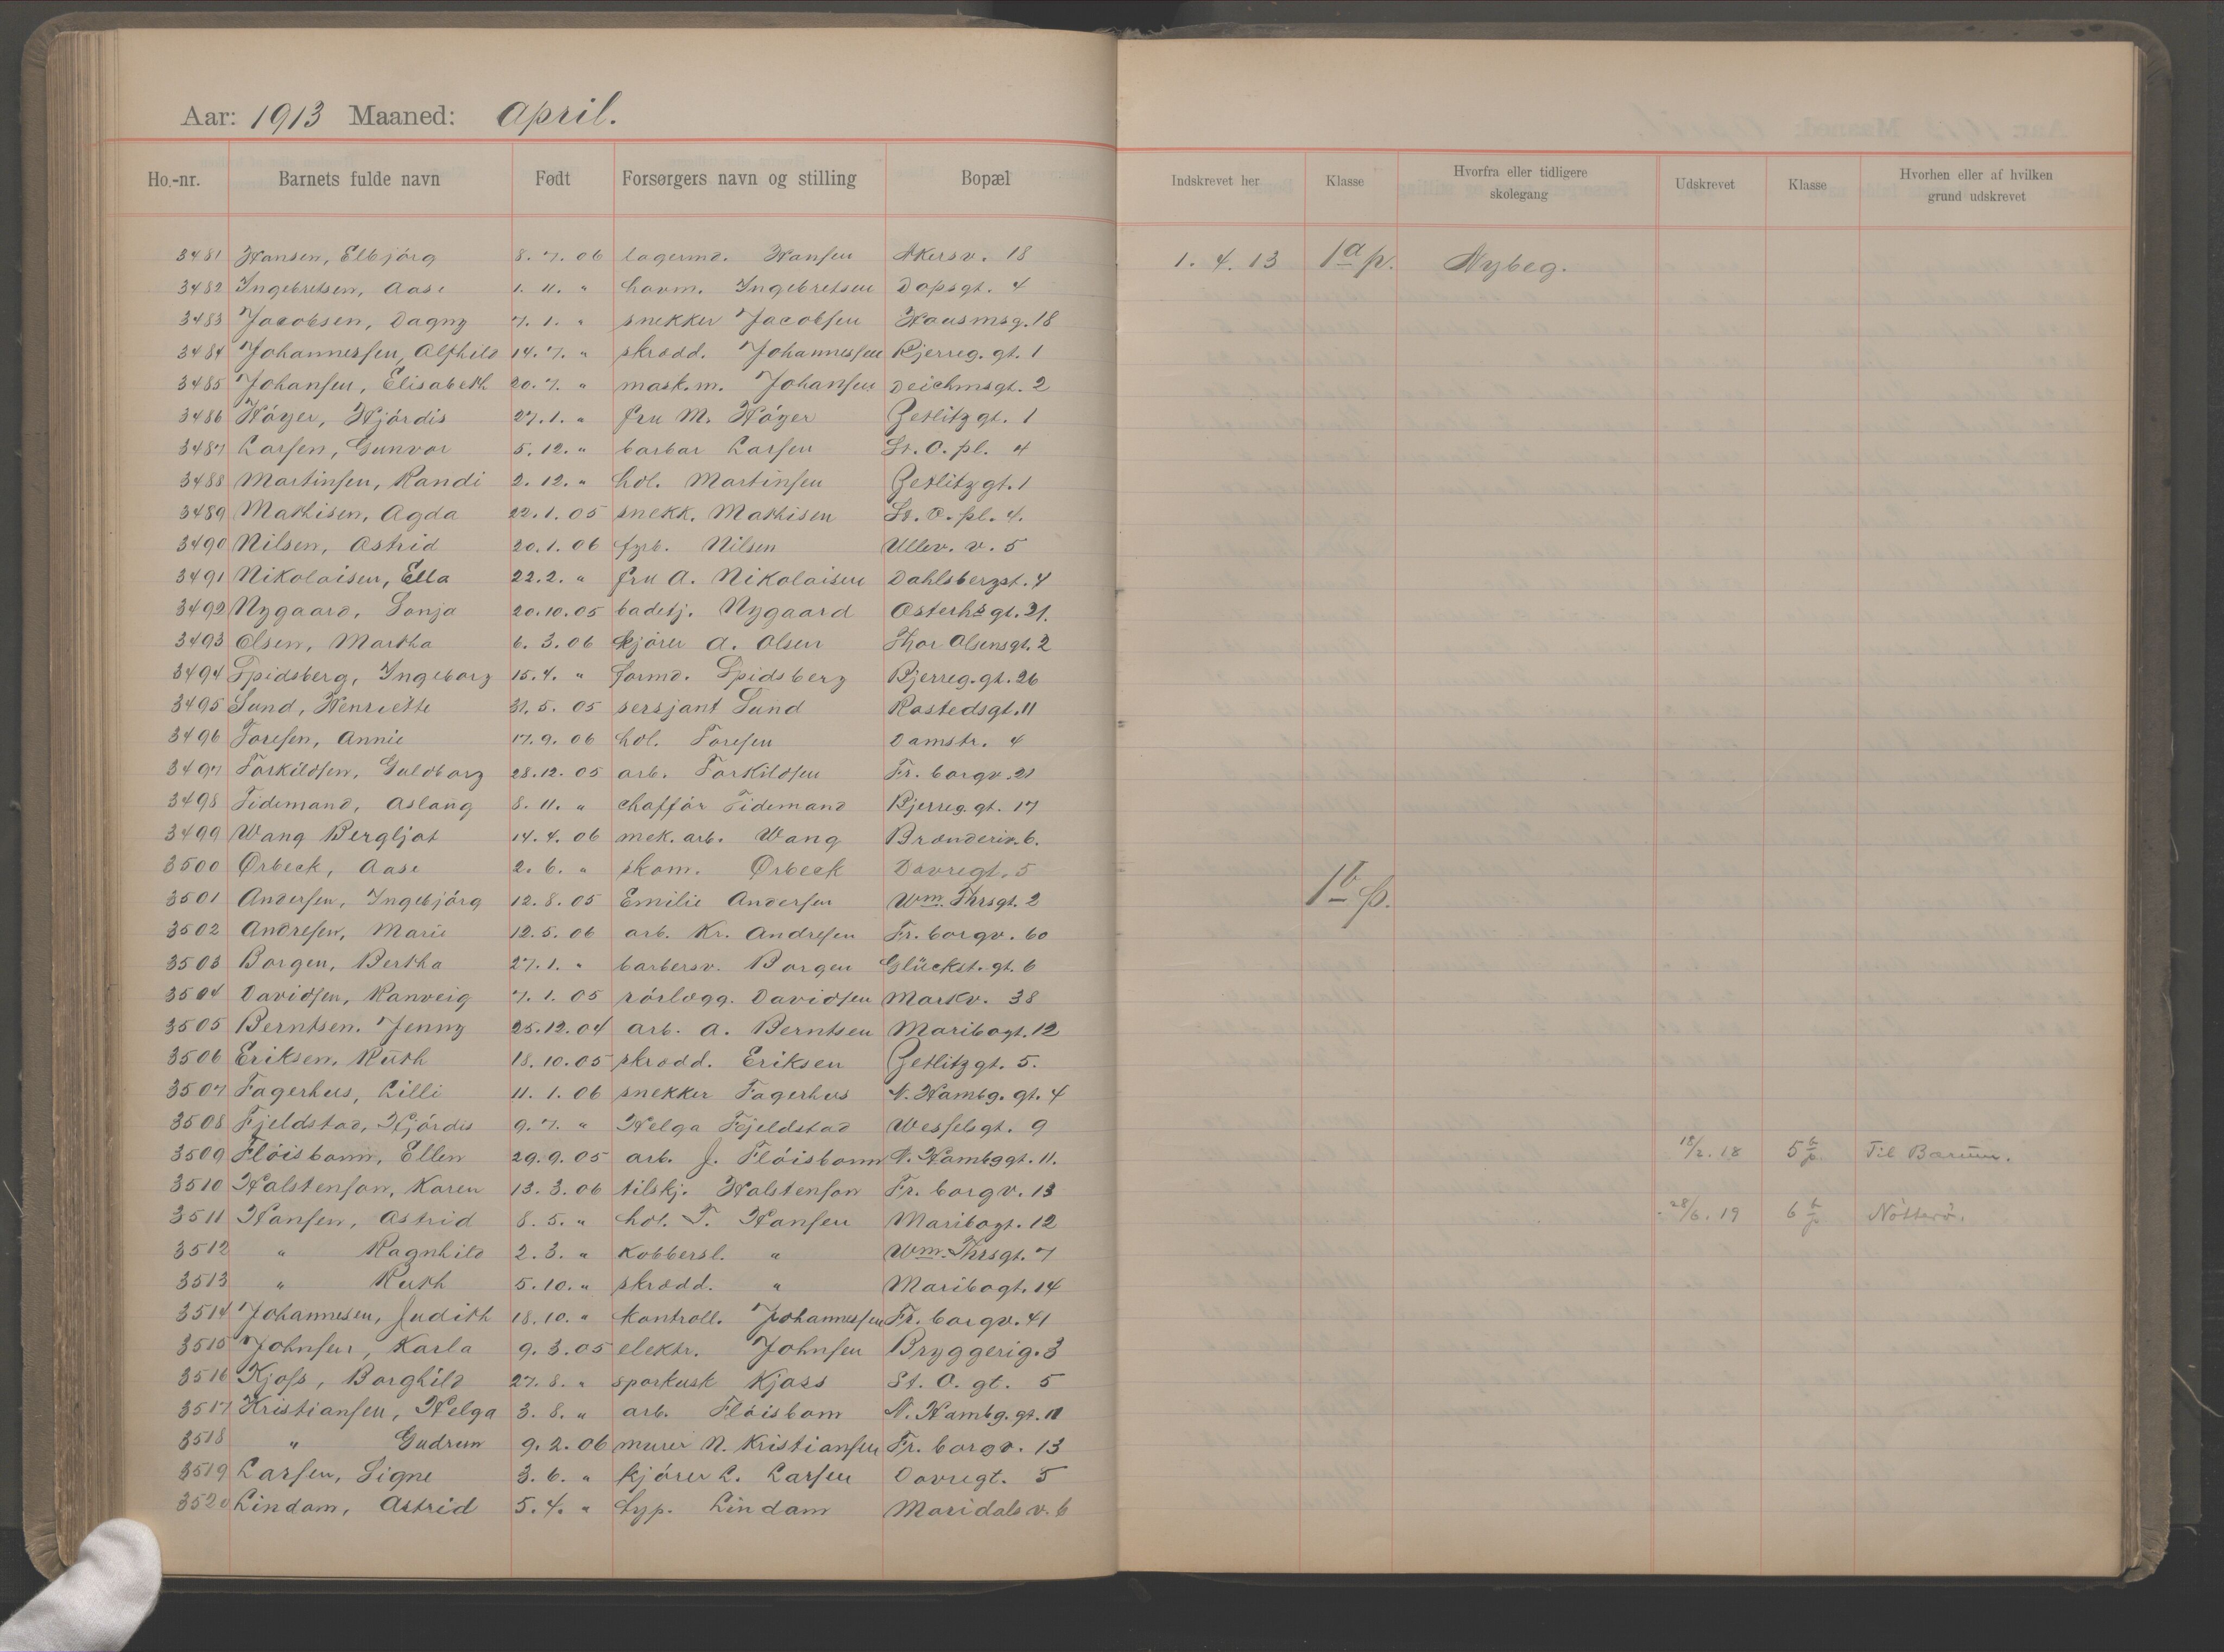 Aar: 1913 Maaned: April.
Ho.-nr. Barnets fulde navn Født Forsørgers navn og stilling Bopæl Indskrevet her Klasse Hvorfra eller tidligere skolegang Udskrevet Klasse Hvorhen eller af hvilken grund udskrevet
3481 Hansen, Elbjörg 8. 7. 06 lagermd. Hansen Akersv. 18 1. 4. 13 1a p. Nybeg.
3482 Ingebretsen, Aase 1. 11. " havm. Ingebretsen Dopsgt. 4
3483 Jacobsen, Dagny 7. 1. " snekker Jacobsen Hausmsg. 18
3484 Johannessen, Alfhild 14. 7. " skrædd. Johannessen Bjerreg. gt. 1
3485 Johansen, Elisabeth 20. 7. " mask.m. Johansen Deichmsgt. 2
3486 Höyer, Hjördis 27. 1. " fru M. Höyer Getlitzgt. 1
3487 Larsen, Gunvor 5. 12. " barbar Larsen St. O. pl. 4
3488 Martinsen, Randi 2. 12. " hdl. Martinsen Getlitzgt. 1
3489 Mathisen, Agda 22. 1. 05 snekk. Mathisen St. O. pl. 4.
3490 Nilsen, Astrid 20. 1. 06 fyrb. Nilsen Ullev. v. 5
3491 Nikolaisen, Ella 22. 2. " fru A. Nikolaisen Dahlsbergst. 4
3492 Nygaard, Sonja 20. 10. 05 badetj. Nygaard Osterhs gt. 21.
3493 Olsen, Martha 6. 3. 06 kjörer A. Olsen Thor Olsensgt. 2
3494 Spidsberg, Ingeborg 15. 4. " formd. Spidsberg Bjerreg. gt. 26
3495 Sund, Henriette 31. 5. 05 sersjant Sund Rostedsgt. 11
3496 Toresen, Annie 17. 9. 06 hdl. Toresen Damstr. 4
3497 Torkildsen, Guldborg 28. 12. 05 arb. Torkildsen Fr. borgv. 21
3498 Tidemand, Aslaug 8. 11. " chafför Tidemand Bjerreg. gt. 17
3499 Wang Bergljot 14. 4. 06 mek. arb. Wang Brænderiv. 6.
3500 Ørbeck, Aase 2. 6. " skom. Ørbeck Dovregt. 5
3501 Andersen, Ingebjörg 12. 8. 05 Emilie Andersen Wm. Thrsgt. 2 1b p.
3502 Andresen, Marie 12. 5. 06 arb. Kr. Andresen Fr. borgv. 60
3503 Borgen, Bertha 27. 1. " barbersv. Borgen Glückst. gt. 6
3504 Davidsen, Ranveig 7. 1. 05 rörlægg. Davidsen Markv. 38
3505 Berntsen. Jenny 25. 12. 04 arb. A. Berntsen Maribogt. 12
3506 Eriksen, Ruth 18. 10. 05 skrædd. Eriksen Getlitzgt. 5.
3507 Fagerhus, Lilli 11. 1. 06 snekker Fagerhus N. Hambg. gt. 4
3508 Fjeldstad, Hjördis 9. 7. " Helga Fjeldstad Wesselsgt. 9
3509 Flöisbonn, Ellen 29. 9. 05 arb. J. Flöisbonn N. Hambggt. 11. 18/2. 18 5b p. Til Bærum.
3510 Halstenson, Karen 13. 3. 06 tilskj. Halstenson Fr. borgv. 13
3511 Hansen, Astrid 8. 5. " hdl. T. Hansen Maribogt. 12 28/6. 19 6b p Nötterö.
3512 " Ragnhild 2. 3. " Kobbersl. " Wm. Thrsgt. 7
3513 " Ruth 5. 10. " skrædd. " Maribogt. 14
3514 Johannesen, Judith 18. 10. " kontroll. Johannessen Fr. borgv. 41
3515 Johnsen, Karla 9. 3. 05 elektr. Johnsen Bryggerig. 3
3516 Kjoss, Borghild 27. 8. " sporkusk Kjoss St. O. gt. 5
3517 Kristiansen, Helga 3. 8. " arb. Flöisbom N. Hambg. gt. 11
3518 " Gudrun 9. 2. 06 murer N. Kristiansen Fr. borgv. 13
3519 Larsen, Signe 3. 6. " kjörer L. Larsen Dovregt. 5
3520 Lindam, Astrid 5. 4. " typ. Lindam Maridalsv. 6